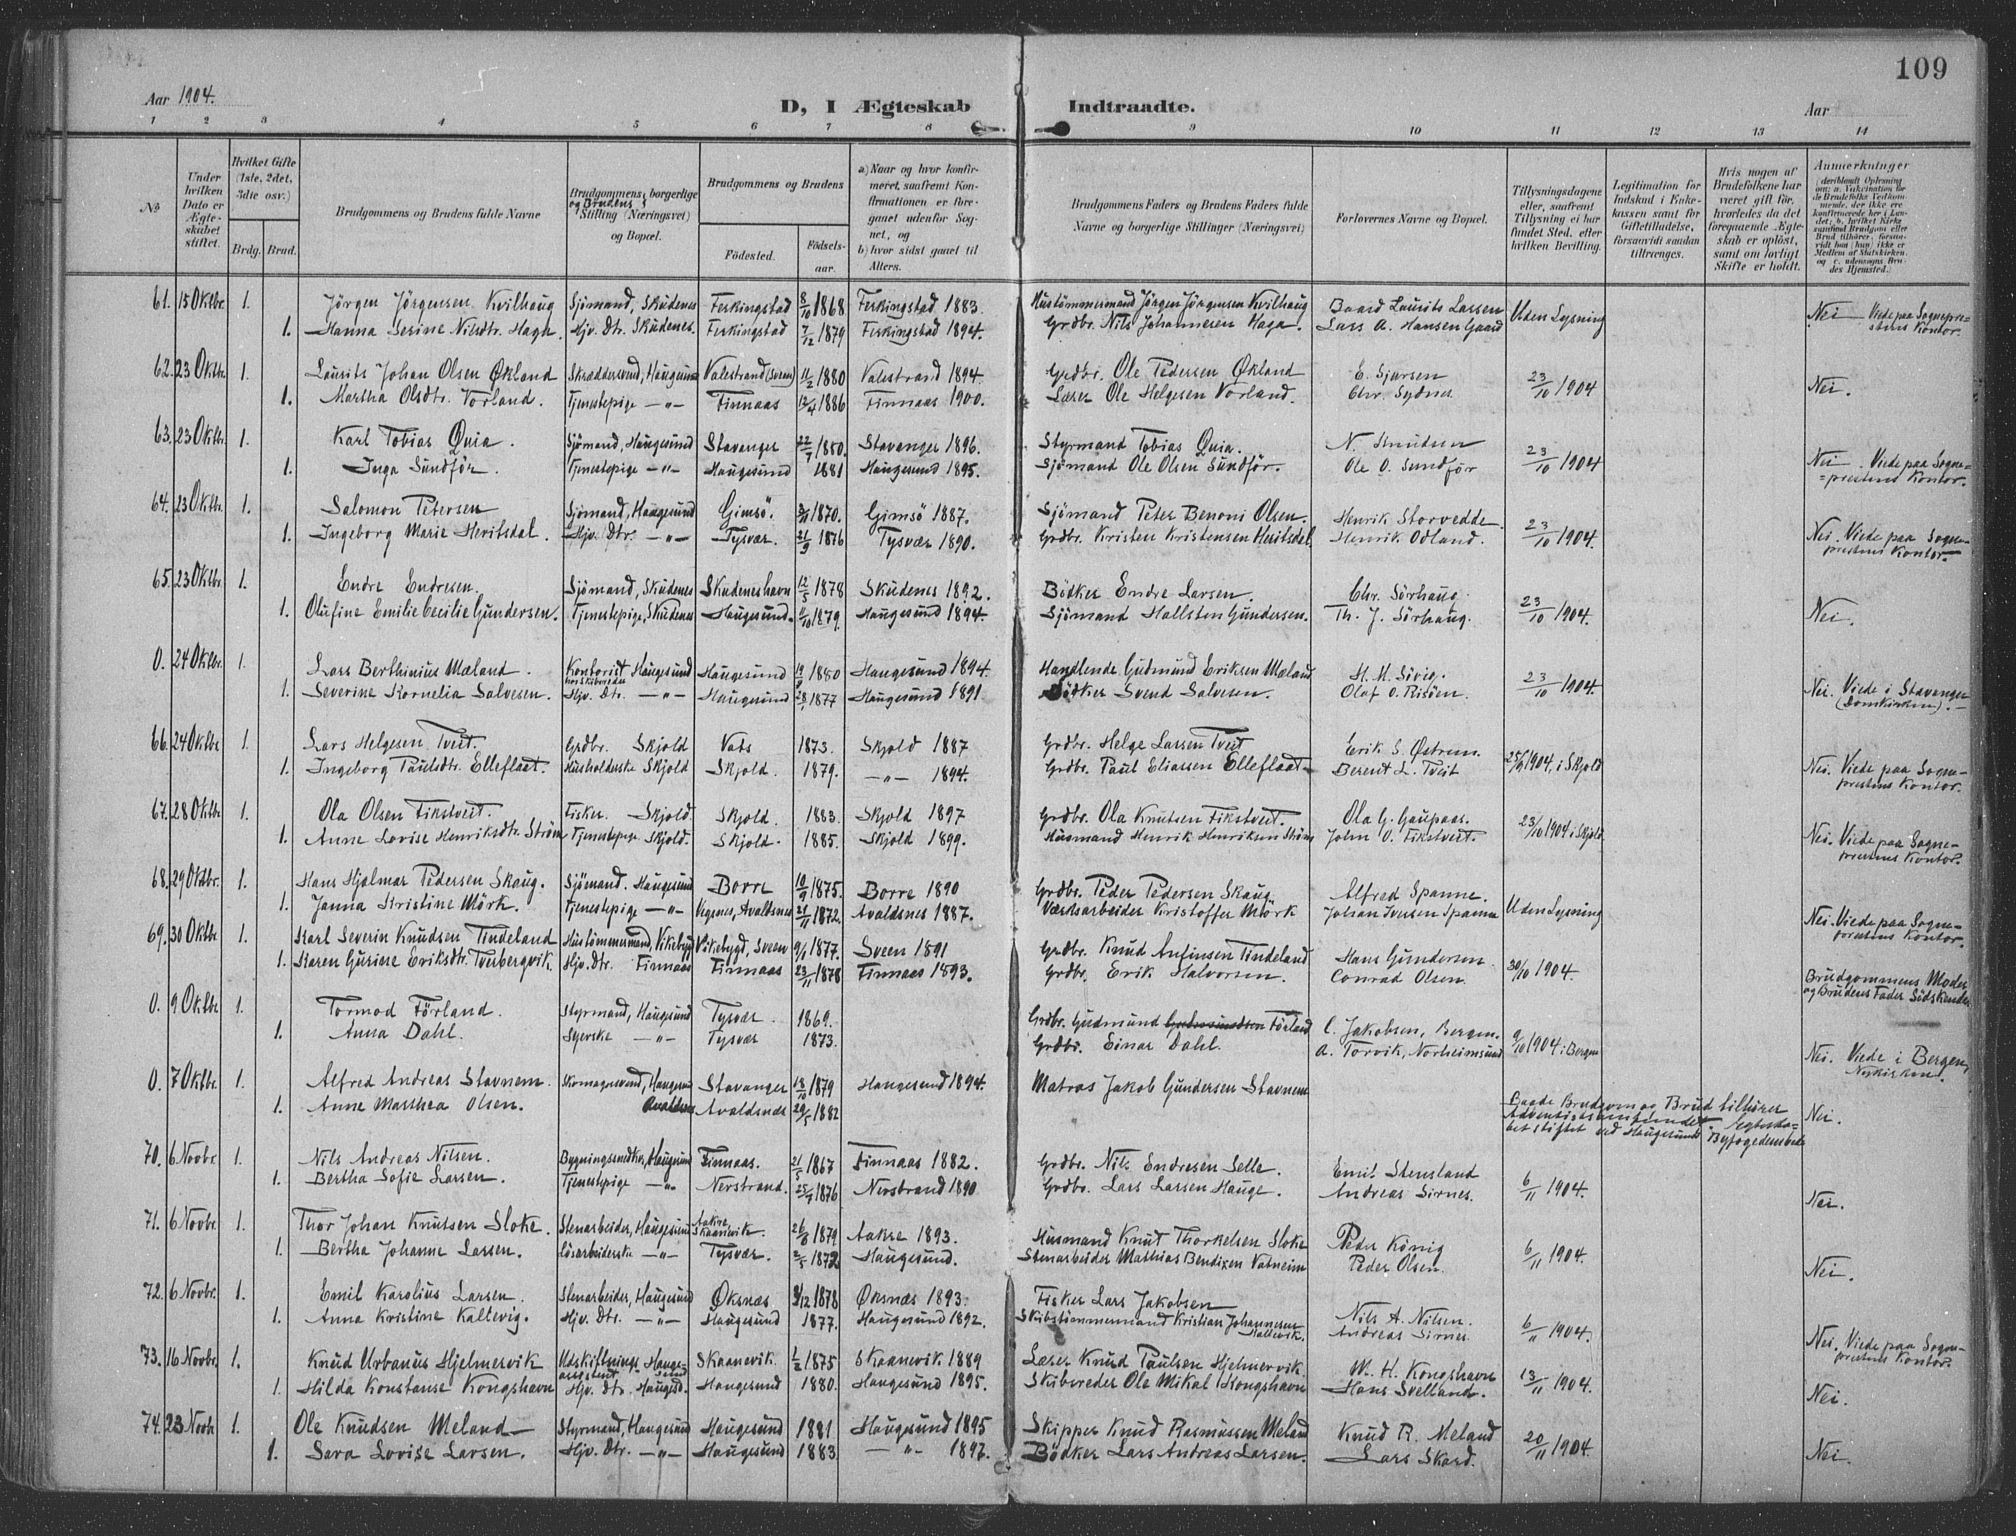 109
Aar 1904.
D, I Ægteskab Indtraadte.
Aar
1 2 3 4 5 6 7 8 9 10 11 12 13 14
No
Under hvilken Dato er Ægteskabet stiftet.
Hvilket Gifte (1ste, 2det, 3die osv.)
Brdg. Brud.
Brudgommens og Brudens fulde Navne
Brudgommens og Brudens borgerlige Stilling (Næringsvei) og Bopæl.
Brudgommens og Brudens
Fødested. Fødselsaar.
a) Naar og hvor konfirmeret, saafremt Konfirmationen er foregaaet udenfor Sognet, og b) hvor sidst gaaet til Alters.
Brudgommens Faders og Brudens Faders fulde Navne og borgerlige Stillinger (Næringsvei)
Forlovernes Navne og Bopæl.
Tillysningsdagene eller, saafremt Tillysning ei har fundet Sted, efter hvilken Bevilling.
Legitimation for Indskud i Enkekassen samt for Giftetilladelse, forsaavidt saadan tiltrænges.
Hvis nogen af Brudefolkene har været gift før, hvorledes da det foregaaende Ægteskab er opløst, samt om lovligt Skifte er holdt.
Anmerkninger (deriblandt Oplysning om: a. Vakcination for de Brudefolks Vedkommende, der ikke ere konfirmerede her i Landet; b. hvilket Kirkesamfund Brudgom eller Brud tilhører, forsaavidt han (hun) ikke er Medlem af Statskirken, og c. udensogns Brudes Hjemsted.)
61. 15 Oktbr. 1. Jörgen Jörgensen Kvilhaug Sjömand, Skudenes Ferkingstad 8/10 1868 Ferkingstad 1883. Hustömmermand Jörgen Jörgensen Kvilhaug Baard Laurits Larsen Uden Lysning Nei – Viede paa Sogneprestens Kontor.
1. Hanna Serine Nilsdtr. Hagh. Hjv. Dtr. Skudenes. Ferkingstad 7/12 1879 Ferkingstad 1894. Grdbr. Nils Johannesen Haga. Lars A. Hansen Gaard
62. 23 Oktbr. 1. Laurits Johan Olsen Økland Skræddersvend, Haugesund Valestrand (Sveen) 11/2 1880 Valestrand 1894. Grdbr. Ole Pedersen Økland E. Sjursen 23/10 1904 Nei.
1. Martha Olsdtr. Vorland. Tjenestepige –"– Finnaas 12/4 1886 Finnaas 1900. Læser Ole Helgesen Vorland. Chr. Sydnes
63. 23 Oktbr. 1. Karl Tobias Qvia. Sjömand, Haugesund Stavanger 22/7 1880. Stavanger 1896. Styrmand Tobias Qvia. N. Knudsen 23/10 1904 Nei – Viede paa Sogneprestens Kontor.
1. Inga Sundför. Tjenestepige –"– Haugesund 1881 Haugesund 1895. Sjömand Ole Olsen Sundför. Ole O. Sundför
64. 23 Oktbr. 1. Salomon Petersen Sjömand, Haugesund Gimsö. 1870. Gimsö 1887. Sjömand Peter Benoni Olsen. Henrik Storvedde 23/10 1904. Nei. Viede paa Sogneprestens Kontor
1. Ingeborg Marie Heritsdal. Hjv. Dtr. –"– Tysvær. 21/9 1876 Tysvær 1890. Grdbr. Kristen Kristensen Heritsdal Henrik Odland.
65. 23 Oktbr. 1. Endre Endresen. Sjömand, Skudenes Skudeneshavn 12/5 1878 Skudenes 1892. Bödker Endre Larsen. Chr. Sörhaug. 23/10 1904. Nei.
1. Olufine Emilie Cecilie Gundersen. Tjenestepige, Skudenes Haugesund. 11/10 1879. Haugesund 1894. Sjömand Hallsten Gundersen. Th. J. Sörhaug.
0. 24 Oktbr. 1. Lars Berthinius Mæland. Kontorist hos Skibsreder Haugesund Haugesund 1880 Haugesund 1894. Handlende Gudmund Eriksen Mæland H. M. Sövig. 23/10 1904. Nei. Viede i Stavanger (Domkirken).
1. Severine Kornelia Salvesen. Hjv. Dtr. –"– Haugesund 1877 Haugesund 1891. Bödker Svend Salvesen. Olaf O. Risöen.
66. 24 Oktbr. 1. Lars Helgesen Tveit. Grdbr. Skjold Vats 1873. Skjold 1887 Grdbr. Helge Larsen Tveit Erik S. Östrem. 25/9 1904, i Skjold Nei. Viede paa Sogneprestens Kontor.
1. Ingeborg Paulsdtr. Elleflaat. Husholderske Skjold Skjold. 1879. –"– 1894. Grdbr. Paul Eliassen Elleflaat. Berent L. Tveit
67. 28 Oktbr. 1. Ola Olsen Fikstveit. Fisker. Skjold. Skjold. 1883. Skjold 1897 Grdbr. Ola Knutsen Fikstveit. Ola G. Gaupaas. 23/10 1904 i Skjold Nei. Viede paa Sogneprestens Kontor.
1. Anne Lovise Henriksdtr. Ström Tjenestepige Skjold. Skjold. 1885. Skjold 1899. Husmand Henrik Henriksen Ström John O. Fikstveit.
68. 29 Oktbr. 1. Hans Hjalmar Pedersen Skaug. Sjömand. Haugesund Borre 10/9 1875. Borre 1890 Grdbr. Peder Pedersen Skaug Alfred Spanne. Uden Lysning Nei. Viede paa Sogneprestens Kontor.
1. Janna Kristine Mörk. Tjenestepige –"– Vegenes, Avaldsnes 21/11 1872. Avaldsnes 1887. Værksarbeider Kristoffer Mörk Johan Iversen Spanne
69. 30 Oktbr. 1. Karl Severin Knudsen Tindeland Hustömmermand, Vikebygd Vikebygd, Sveen 9/1 1877. Sveen 1891 Grdbr. Knud Anfinsen Tindeland Hans Gundersen 30/10 1904. Brudgommens Moder og Brudens Fader Södskende
1. Karen Gurine Eriksdtr. Tveibergvik. Hjv. Dtr. Finnaas Finnaas 23/11 1878 Finnaas 1893. Grdbr. Erik Halvorsen. Conrad Olsen.
0. 9 Oktbr. 1. Tormod Förland. Styrmand, Haugesund Tysvær. 1869. Grdbr. Gudmund Gudmundsen Förland C. Jakobsen, Bergen. 9/10 1904 i Bergen Nei. Viede i Bergen, Nykirken.
1. Anna Dahl. Syerske –"– Tysvær 1873. Grdbr. Einar Dahl. A. Torvik, Norheimsund
0. 7 Oktbr. 1. Alfred Andreas Stavnem. Skomagersvend, Haugesund Stavanger 18/10 1879 Haugesund 1894. Matros Jakob Gundersen Stavnem Baade Brudgom og Brud tilhører Adventistsamfundet. Ægteskabet stiftet ved Haugesunds Byfogedembede Nei.
1. Anne Marthea Olsen. Avaldsnes Avaldsnes 29/5 1882
70. 6 Novbr. 1. Nils Andreas Nilsen. Bygningssnedker, Haugesund Finnaas. 21/5 1867 Finnaas 1882. Grdbr. Nils Endresen Selle. Emil Stensland 6/11 1904. Nei.
1. Bertha Sofie Larsen. Tjenestepige –"– Nerstrand. 25/7 1876 Nerstrand 1890 Grdbr. Lars Larsen Hauge. Andreas Sirnes.
71. 6 Novbr. 1. Thor Johan Knutsen Sloke. Stenarbeider, Haugesund Aakre, Skaanevik. 26/8 1879 Aakre 1893. Husmand Knut Thorkelsen Sloke Peder König 6/11 1904. Nei.
1. Bertha Johanne Larsen. Lösarbeiderske –"– Tysvær. 2/5 1872 Haugesund. Stenarbeider Mathias Bendixen Vatneim Peder Olsen.
72. 6 Novbr. 1. Emil Karolius Larsen. Stenarbeider, Haugesund Øksnæs 9/12 1878 Øksnæs 1893. Fisker Lars Jakobsen Nils A. Nilsen. 6/11 1904. Nei. Viede paa Sogneprestens Kontor.
1. Anna Kristine Kallevig. Hjv. Dtr. –"– Haugesund 1877. Haugesund 1892. Skibstömmermand Kristian Johannesen Kallevik. Andreas Sirnes
73. 16 Novbr. 1. Knud Urbanus Hjelmervik Udskiftningsassistent Haugesund Skaanevik. 1/2 1875 Skaanevik 1889 Læser Knud Paulsen Hjelmervik. M. H. Kongshavn 13/11 1904. Nei.
1. Hilda Konstanse Kongshavn Hjv. Dtr. Haugesd. Haugesund 1880. Haugesund 1895. Skibsreder Ole Mikal Kongshavn Hans Svelland.
74. 23 Novbr 1. Ole Knudsen Meland Styrmand, Haugesund Haugesund 1881 Haugesund 1895 Skipper Knud Rasmussen Meland Knud R. Meland 20/11 1904. Nei.
1. Sara Lovise Larsen. Hjv. Dtr. –"– Haugesund 1883. –"– 1897. Bödker Lars Andreas Larsen. Lars Skard.